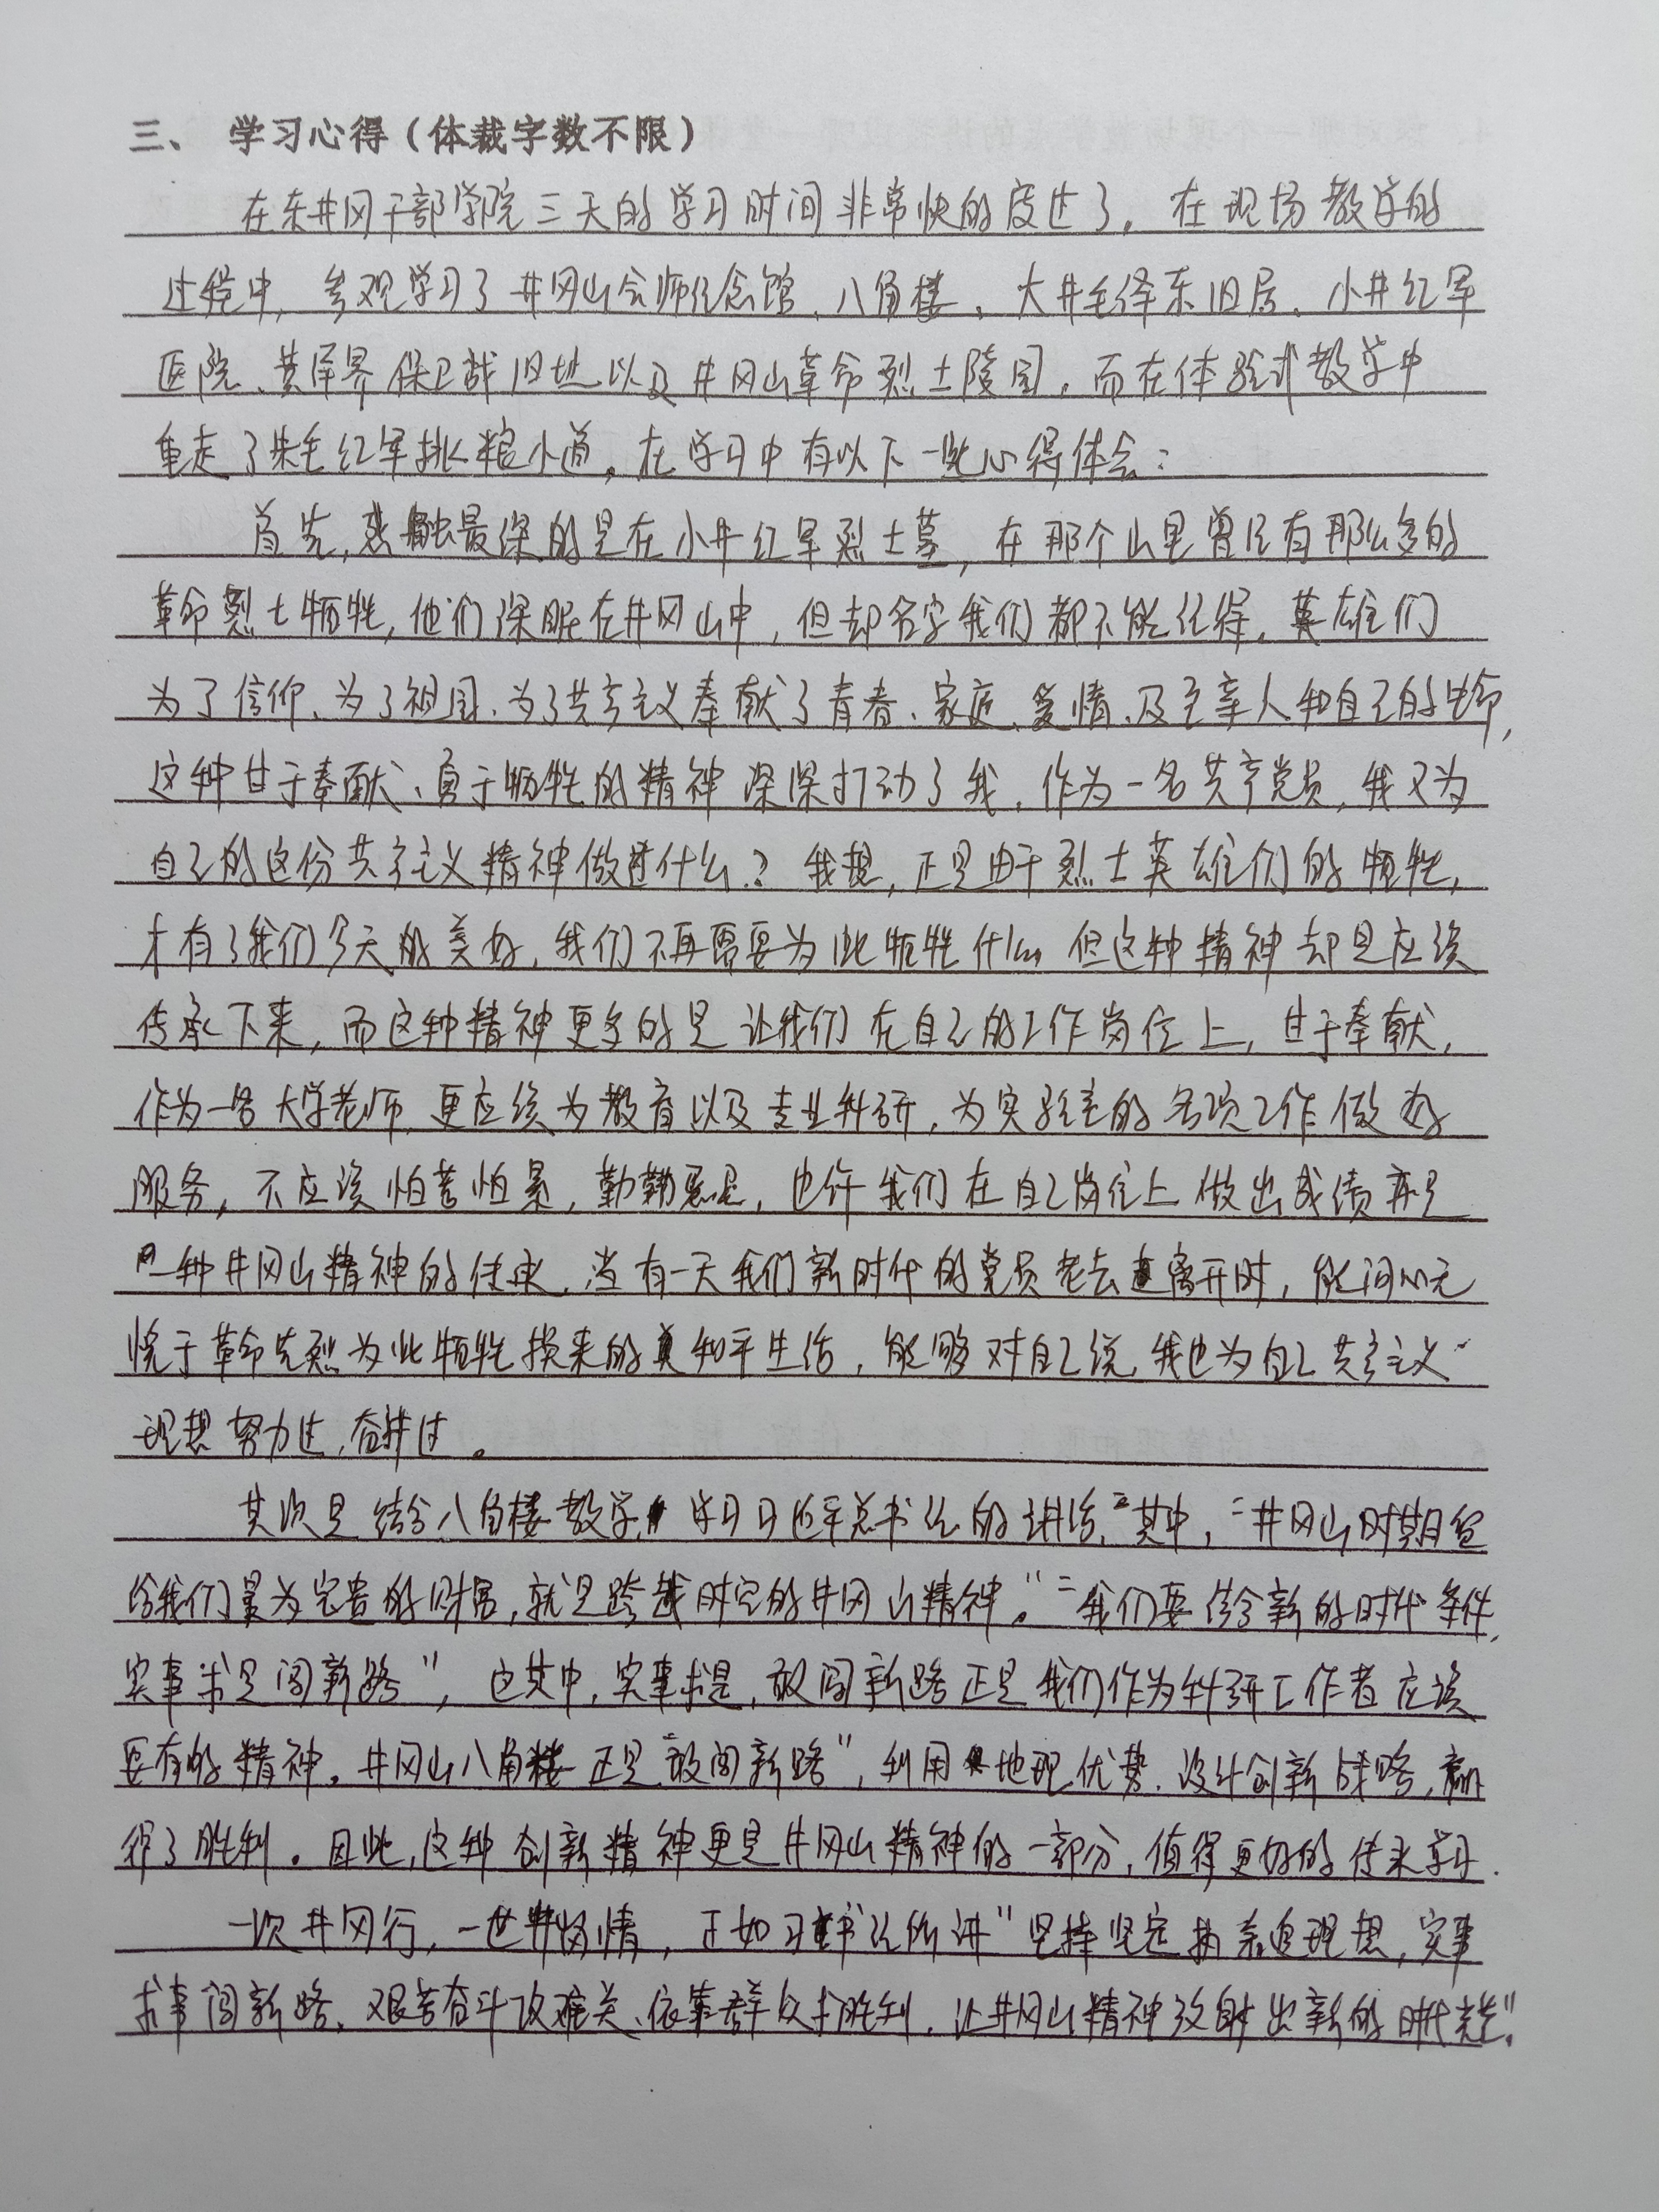 三、 学习心得（体裁字数不限）
在东井冈干部学院三天的学习时间非常快的度过了。在现场教学的
过程中，参观学习了井冈山会师纪念馆、八角楼、大井毛泽东旧居、小井红军
医院、黄洋界保卫战旧地以及井冈山革命烈士陵园。而在体验式教学中
重走了朱毛红军挑粮小道。在学习中有以下一些心得体会：
首先，感触最深的是在小井红军烈士墓，在那个山里曾经有那么多的
革命烈士牺牲，他们深眠在井冈山中，但却名字我们都不能记得。英雄们
为了信仰、为了祖国、为了共产主义奉献了青春、家庭、爱情、及至亲人和自己的生命，
这种甘于奉献、勇于牺牲的精神深深打动了我。作为一名共产党员，我又为
自己的这份共产主义精神做过什么？我想，正是由于烈士英雄们的牺牲，
才有了我们今天的美好，我们不再需要为此牺牲什么。但这种精神却是应该
传承下来，而这种精神更多的是让我们在自己的工作岗位上，甘于奉献，
作为一名大学老师，更应该为教育以及专业科研，为实验室的各项工作做好
服务，不应该怕苦怕累，勤勤恳恳，也许我们在自己岗位上做出成绩亦是
一种井冈山精神的传承。当有一天我们新时代的党员老去离开时，能问心无
愧于革命先烈为此牺牲换来的和平生活，能够对自己说，我也为自己共产主义
理想努力过，奋斗过。
其次是结合八角楼教学，学习习近平总书记的讲话，其中，“井冈山时期留
给我们最为宝贵的财富，就是跨越时空的井冈山精神。”“我们要结合新的时代条件，
实事求是闯新路”，这其中，实事求是，敢闯新路正是我们作为科研工作者应该
要有的精神。井冈山八角楼正是“敢闯新路”，利用地理优势，设计创新战略，赢
得了胜利。因此，这种创新精神更是井冈山精神的一部分，值得更好的传承学习。
一次井冈行，一世井冈情，正如习书记所讲“坚持坚定执着追理想，实事
求事闯新路，艰苦奋斗攻难关、依靠群众求胜利，让井冈山精神放射出新的时代光芒”。